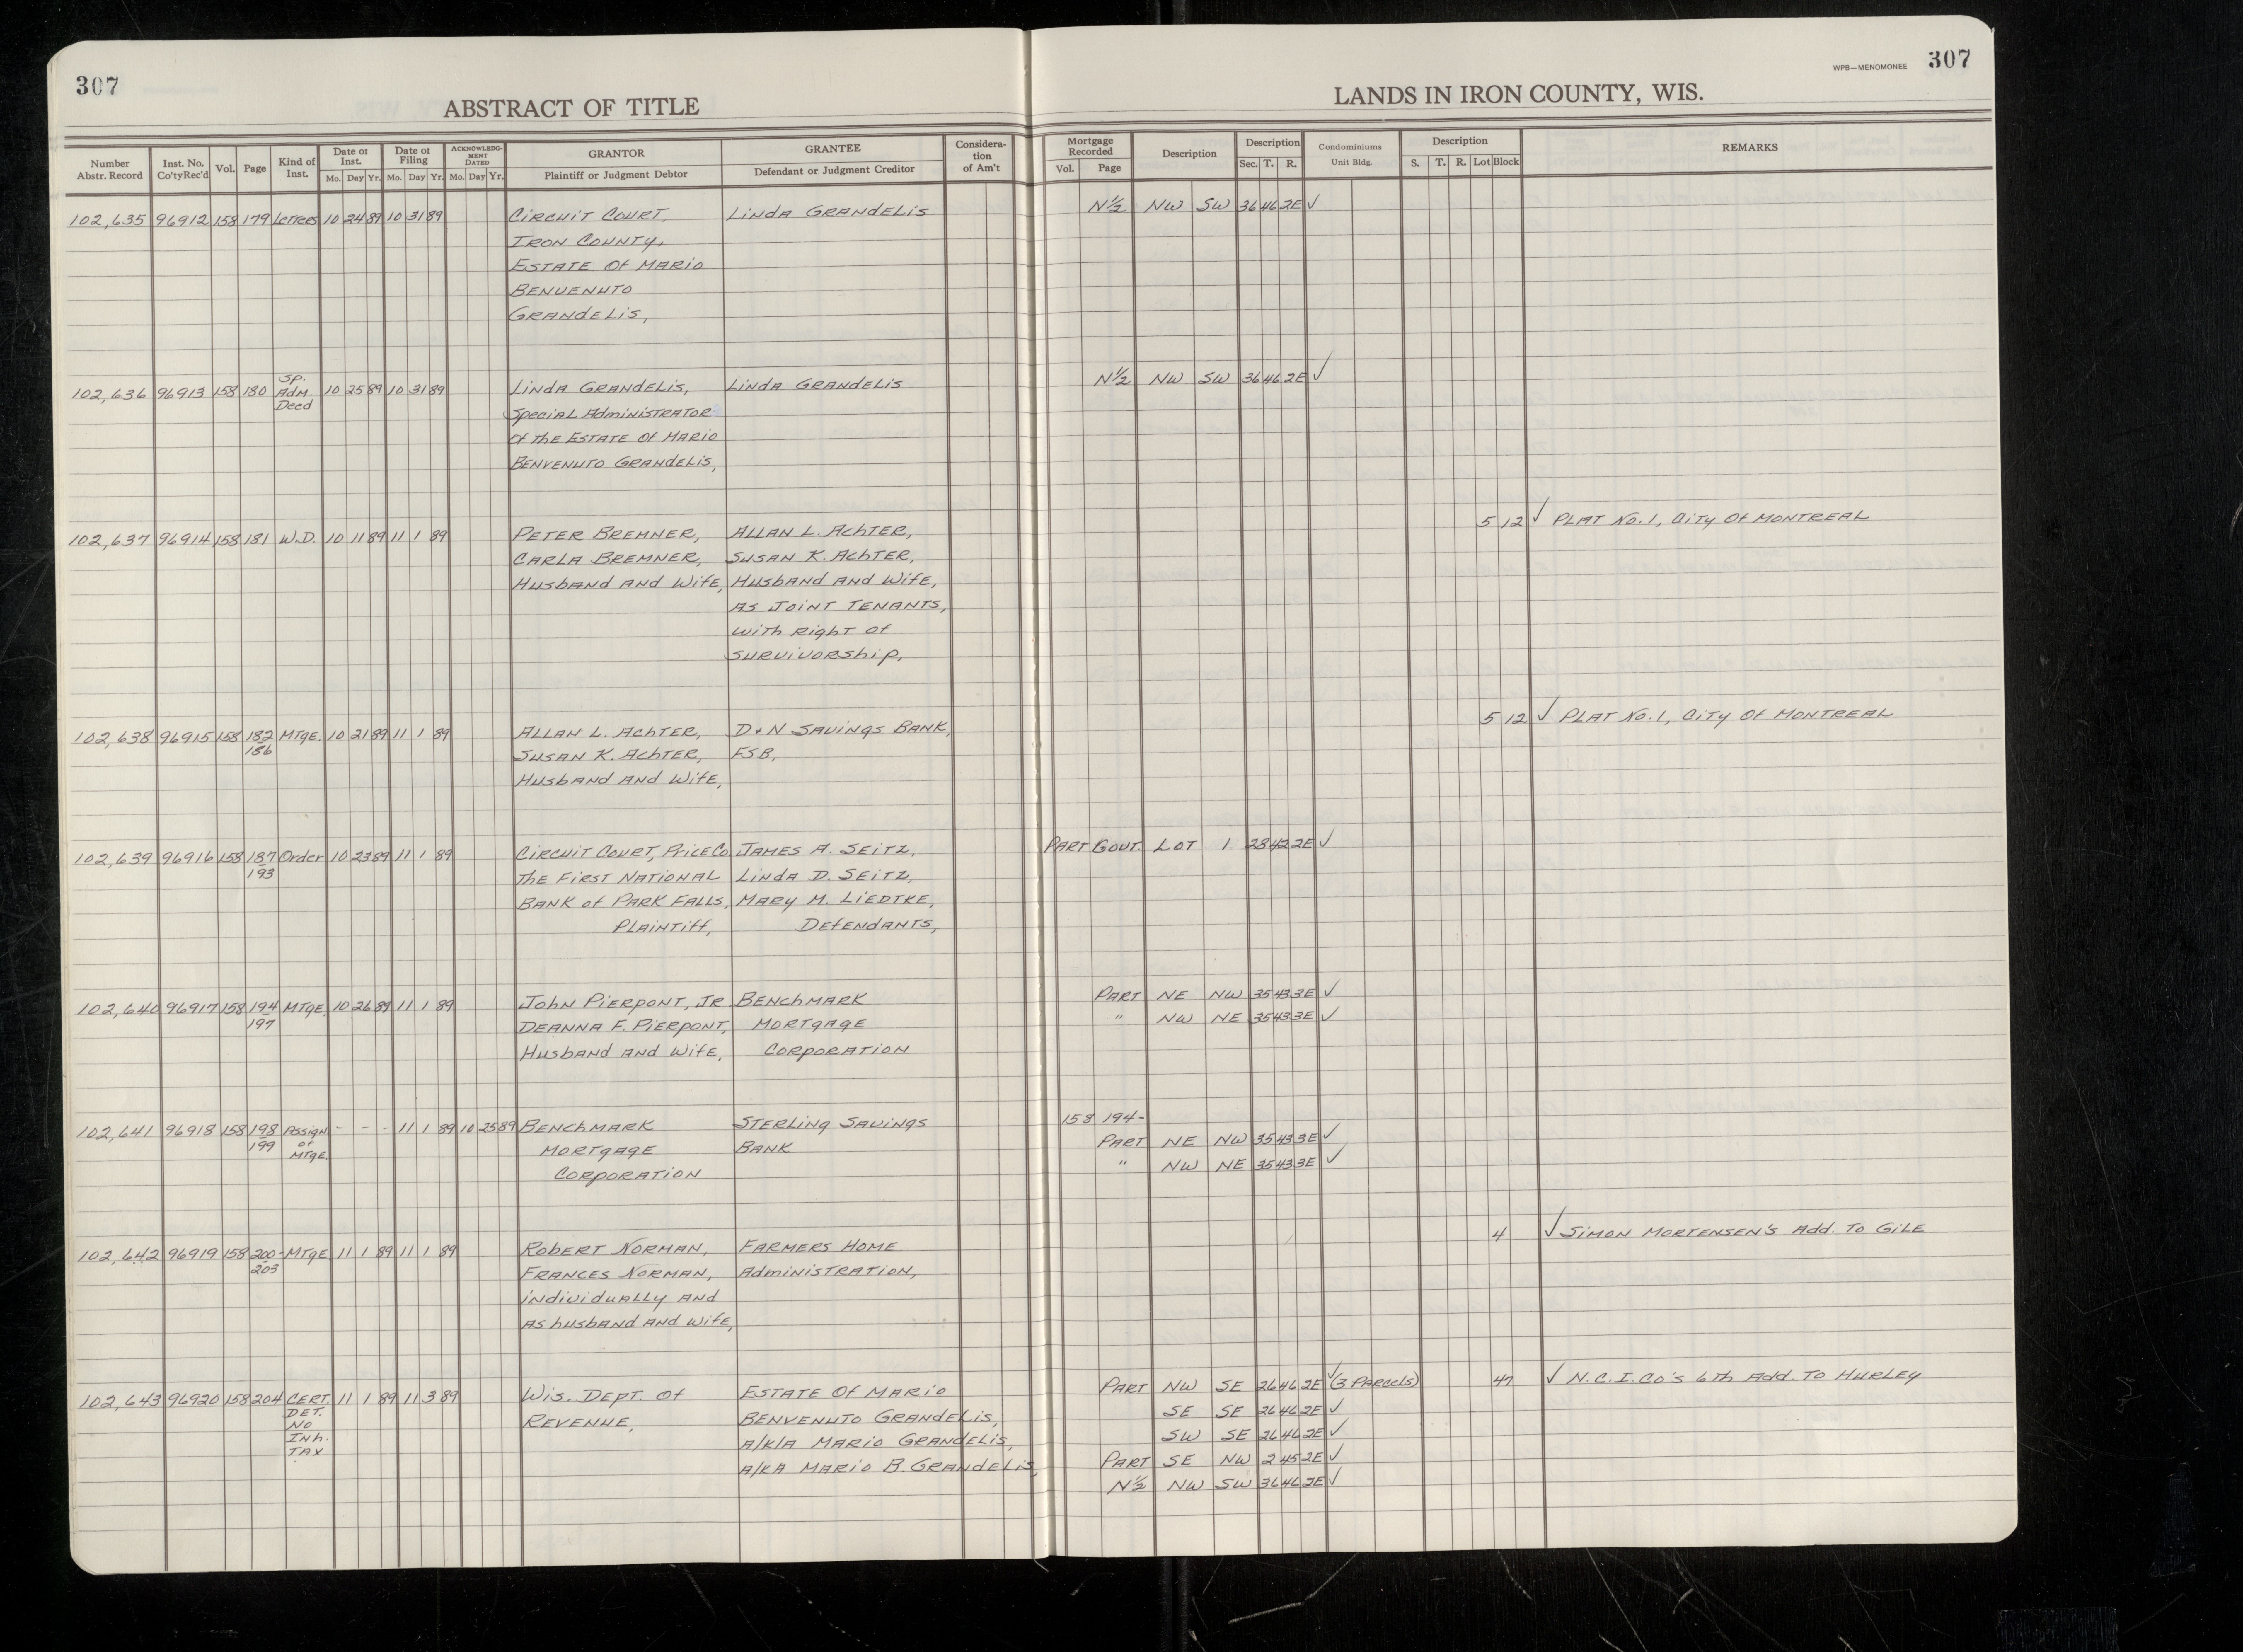 307
307
WPB—MENOMONEE
ABSTRACT OF TITLE
LANDS IN IRON COUNTY, WIS.
Number Abstr. Record | Inst. No. Co'ty Rec'd | Vol. | Page | Kind of Inst. | Date of Inst. Mo. Day Yr. | Date of Filing Mo. Day Yr. | ACKNOWLEDGMENT DATED Mo. Day Yr. | GRANTOR Plaintiff or Judgment Debtor | GRANTEE Defendant or Judgment Creditor | Consideration of Am't | Mortgage Recorded Vol. Page | Description | Description Sec. T. R. | Condominiums Unit Bldg. | Description S. T. R. Lot Block | REMARKS
102,635 96912 158 179 Letters 10 24 89 10 31 89 Circuit Court, Linda Grandelis N½ NW SW 36 46 2E ✓
Iron County,
Estate of Mario
Benvenuto
Grandelis,
102,636 96913 158 180 Sp. Adm. Deed 10 25 89 10 31 89 Linda Grandelis, Linda Grandelis N½ NW SW 36 46 2E ✓
Special Administrator
of the Estate of Mario
Benvenuto Grandelis,
102,637 96914 158 181 W.D. 10 11 89 11 1 89 Peter Bremner, Allan L. Achter, 5 12 ✓ Plat No. 1, City of Montreal
Carla Bremner, Susan K. Achter,
Husband and Wife, Husband and Wife,
as Joint Tenants,
with right of
survivorship,
102,638 96915 158 182 186 Mtge. 10 21 89 11 1 89 Allan L. Achter, D+N Savings Bank, 5 12 ✓ Plat No. 1, City of Montreal
Susan K. Achter, FSB,
Husband and Wife,
102,639 96916 158 187 193 Order 10 23 89 11 1 89 Circuit Court, Price Co. James A. Seitz, Part Govt. Lot 1 28 42 2E ✓
The First National Linda D. Seitz,
Bank of Park Falls, Mary M. Liedtke,
Plaintiff, Defendants,
102,640 96917 158 194 197 Mtge. 10 26 89 11 1 89 John Pierpont, Jr Benchmark Part NE NW 35 43 3E ✓
Deanna F. Pierpont, Mortgage " NW NE 35 43 3E ✓
Husband and Wife, Corporation
102,641 96918 158 198 199 Assign of Mtge. - - - 11 1 89 10 25 89 Benchmark Sterling Savings 158 194-
Mortgage Bank Part NE NW 35 43 3E ✓
Corporation " NW NE 35 43 3E ✓
102,642 96919 158 200- 203 Mtge 11 1 89 11 1 89 Robert Norman, Farmers Home 4 ✓ Simon Mortensen's Add. to Gile
Frances Norman, Administration,
individually and
as husband and wife,
102,643 96920 158 204 Cert. Det. No Inh. Tax 11 1 89 11 3 89 Wis. Dept. of Estate of Mario Part NW SE 26 46 2E ✓ (3 Parcels) 47 ✓ N.C.I. Co's 6th Add. to Hurley
Revenue, Benvenuto Grandelis, SE SE 26 46 2E ✓
a/k/a Mario Grandelis, SW SE 26 46 2E ✓
a/k/a Mario B. Grandelis, Part SE NW 2 45 2E ✓
N½ NW SW 36 46 2E ✓